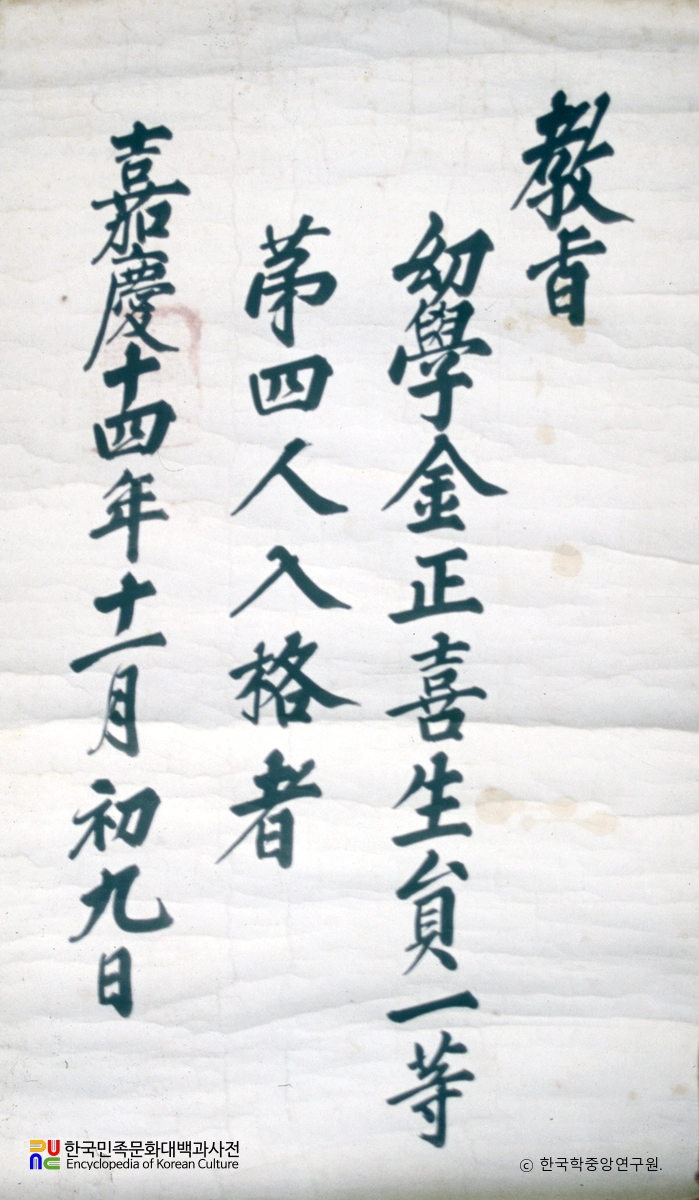 敎旨
幼學金正喜生員一等
第四人入格者
嘉慶十四年十一月初九日
한국민족문화대백과사전
Encyclopedia of Korean Culture
ⓒ 한국학중앙연구원.